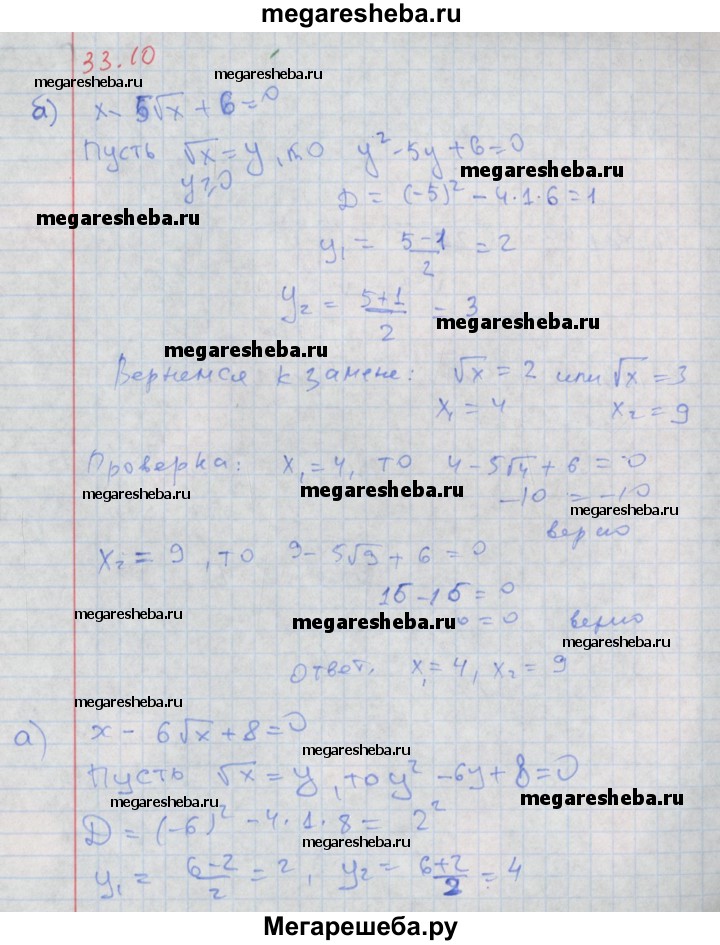 megaresheba.ru
33.10
megaresheba.ru megaresheba.ru
б) x - 5√x + 6 = 0
Пусть √x = y, то y² - 5y + 6 = 0
y ≥ 0
megaresheba.ru
D = (-5)² - 4·1·6 = 1
megaresheba.ru
y₁ = (5-1)/2 = 2
y₂ = (5+1)/2 = 3
megaresheba.ru
megaresheba.ru
Вернемся к замене: √x = 2 или √x = 3
x₁ = 4 x₂ = 9
Проверка: x₁ = 4, то 4 - 5√4 + 6 = 0
megaresheba.ru megaresheba.ru
-10 = -10
megaresheba.ru
верно
x₂ = 9, то 9 - 5√9 + 6 = 0
15 - 15 = 0
megaresheba.ru megaresheba.ru
= 0 верно
megaresheba.ru
Ответ, x₁ = 4, x₂ = 9
megaresheba.ru
а) x - 6√x + 8 = 0
megaresheba.ru
Пусть √x = y, то y² - 6y + 8 = 0
megaresheba.ru megaresheba.ru
D = (-6)² - 4·1·8 = 2²
megaresheba.ru
y₁ = (6-2)/2 = 2, y₂ = (6+2)/2 = 4
Мегарешеба.ру